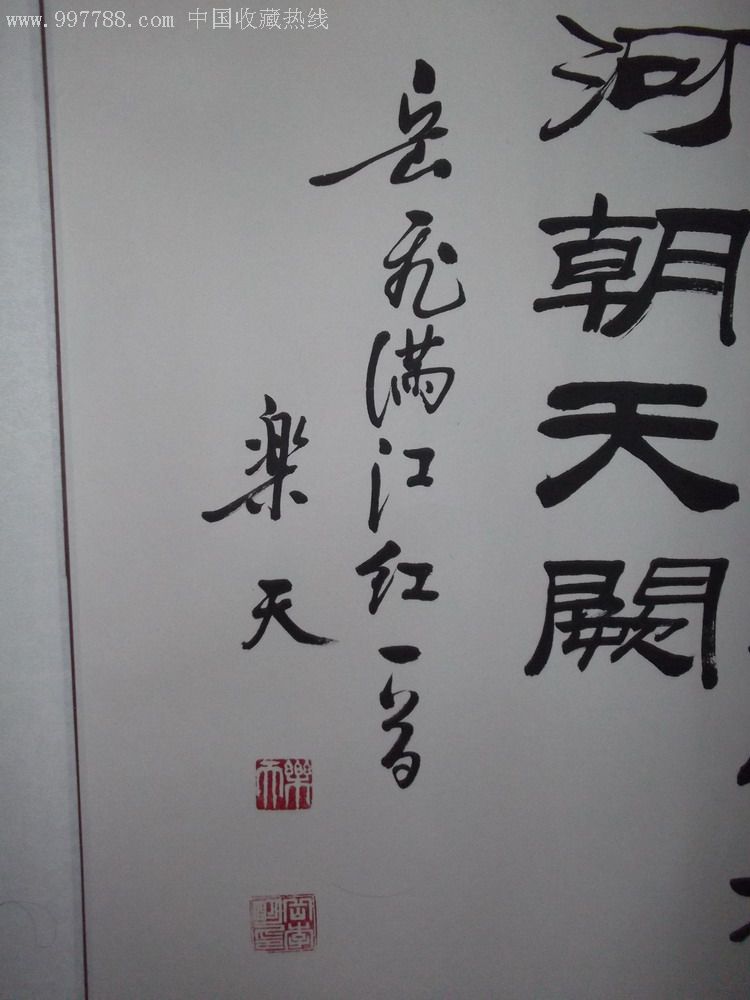 www.997788.com 中国收藏热线
河朝天阙
岳飞满江红一首
楽天
樂天